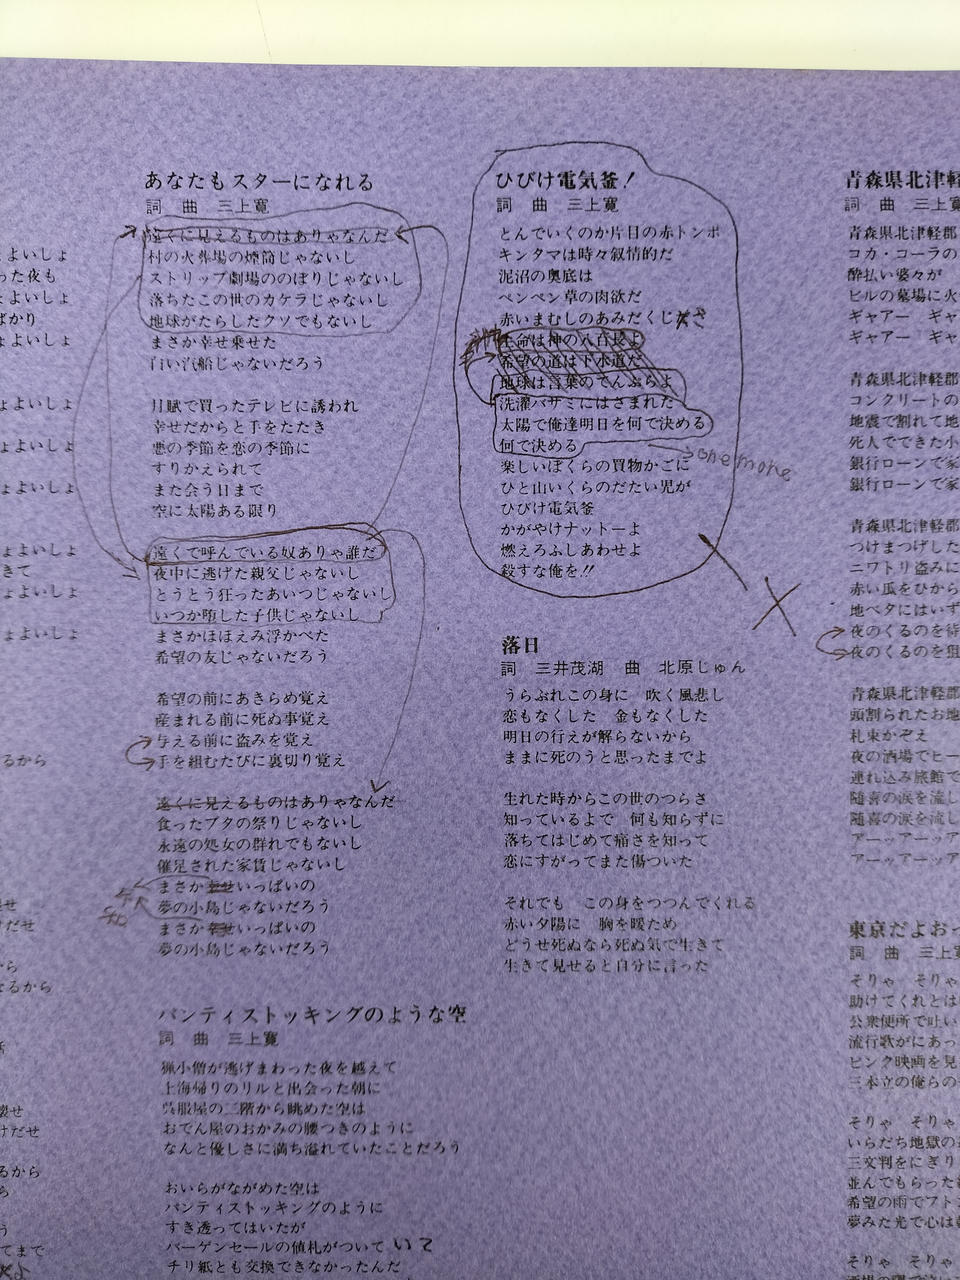 よいしょ
った夜も
よいしょ
ばかり
よいしょ
よいしょ
よいしょ
よいしょ
よいしょ
きて
よいしょ
よいしょ
るから
せ
けだせ
から
なるから
壊せ
けだせ
るから
ら
う
てまで
あなたもスターになれる
詞 曲 三上寛
遠くに見えるものはありゃなんだ
村の火葬場の煙筒じゃないし
ストリップ劇場ののぼりじゃないし
落ちたこの世のカケラじゃないし
地球がたらしたクソでもないし
まさか幸せ乗せた
白い汽船じゃないだろう
月賦で買ったテレビに誘われ
幸せだからと手をたたき
悪の季節を恋の季節に
すりかえられて
また会う日まで
空に太陽ある限り
遠くで呼んでいる奴ありゃ誰だ
夜中に逃げた親父じゃないし
とうとう狂ったあいつじゃないし
いつか堕した子供じゃないし
まさかほほえみ浮かべた
希望の友じゃないだろう
希望の前にあきらめ覚え
産まれる前に死ぬ事覚え
与える前に盗みを覚え
手を組むたびに裏切り覚え
遠くに見えるものはありゃなんだ
食ったブタの祭りじゃないし
永遠の処女の群れでもないし
催促された家賃じゃないし
まさか幸せいっぱいの
夢の小島じゃないだろう
まさか幸せいっぱいの
夢の小島じゃないだろう
パンティストッキングのような空
詞 曲 三上寛
猟小僧が逃げまわった夜を越えて
上海帰りのリルと出会った朝に
呉服屋の二階から眺めた空は
おでん屋のおかみの腰つきのように
なんと優しさに満ち溢れていたことだろう
おいらがながめた空は
パンティストッキングのように
すき透ってはいたが
バーゲンセールの値札がついて いて
チリ紙とも交換できなかったんだ
ひびけ電気釜!
詞 曲 三上寛
とんでいくのか片目の赤トンボ
キンタマは時々叙情的だ
泥沼の奥底は
ペンペン草の肉欲だ
赤いまむしのあみだくじ さ
生命は神の八百長よ
希望の道は下水道だ
地球は言葉のでんぷらよ
洗濯バサミにはさまれた
太陽で俺達明日を何で決める
何で決める
one more
楽しいぼくらの買物かごに
ひと山いくらのだたい児が
ひびけ電気釜
かがやけナットーよ
燃えろふしあわせよ
殺すな俺を!!
落日
詞 三井茂湖 曲 北原じゅん
うらぶれこの身に 吹く風悲し
恋もなくした 金もなくした
明日の行えが解らないから
ままに死のうと思ったまでよ
生れた時からこの世のつらさ
知っているよで 何も知らずに
落ちてはじめて痛さを知って
恋にすがってまた傷ついた
それでも この身をつつんでくれる
赤い夕陽に 胸を暖ため
どうせ死ぬなら死ぬ気で生きて
生きて見せると自分に言った
青森県北津軽
詞 曲 三上寛
青森県北津軽郡
コカ・コーラの
酔払い婆々が
ビルの墓場に火
ギャアー ギャ
ギャアー ギャ
青森県北津軽郡
コンクリートの
地震で割れて地
死人でできた小
銀行ローンで家
銀行ローンで家
青森県北津軽郡
つけまつげした
ニワトリ盗みに
赤い瓜をひから
地ベタにはいず
夜のくるのを待
夜のくるのを狙
青森県北津軽郡
頭割られたお地
札束かぞえ
夜の酒場でヒー
連れ込み旅館で
随喜の涙を流し
随喜の涙を流し
アーッアーッア
アーッアーッア
東京だよおっ
詞 曲 三上寛
そりゃ そりゃ
助けてくれとは
公衆便所で吐い
流行歌がにあっ
ピンク映画を見
三本立の俺らの
そりゃ そりゃ
いらだち地獄の
三文判をにぎり
並んでもらった
希望の雨でアト
夢みた光で心は
そりゃ そりゃ